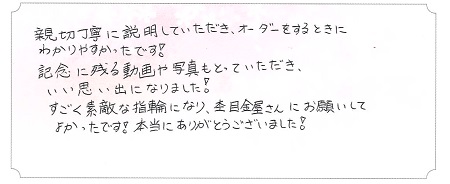 親切丁寧に説明していただき、オーダーをするときに
わかりやすかったです!
記念に残る動画や写真もとっていただき、
いい思い出になりました!
すごく素敵な指輪になり、杢目金屋さんにお願いして
よかったです!本当にありがとうございました!